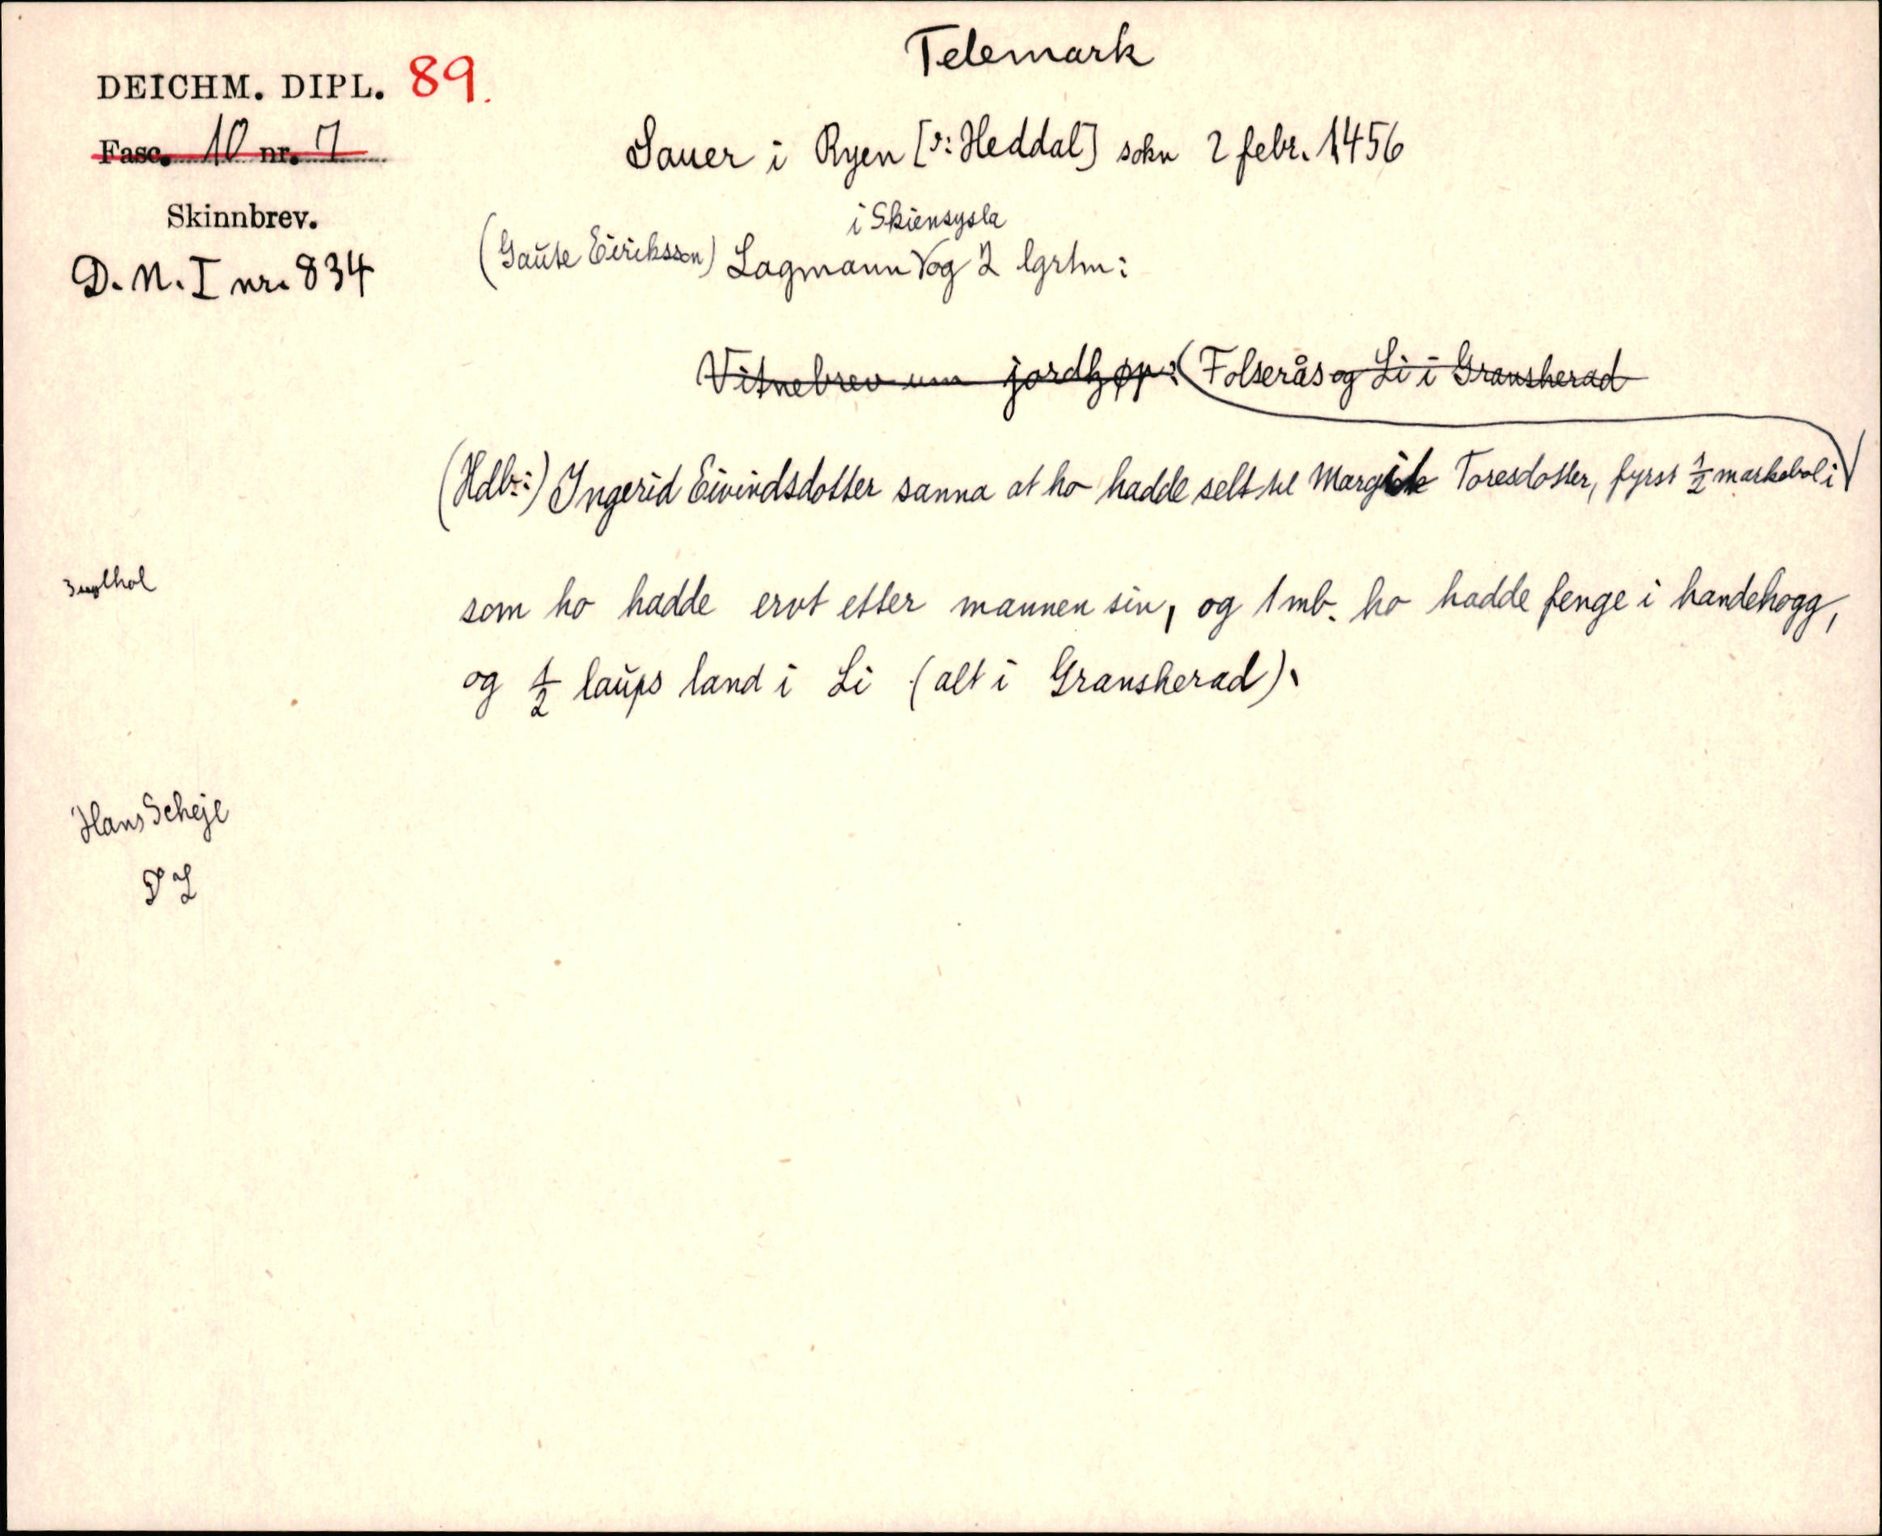 Telemark
DEICHM. DIPL. 89.
Fasc. 10 nr. 7
Skinnbrev.
D. N. I nr. 834
Sauer i Ryen [ɔ: Heddal] sokn 2 febr. 1456
i Skiensysla
(Gaŭte Eiriksson) Lagmann V og 2 lgrtm:
Vitnebrev um jordkjøp: Folserås og Li i Gransherad
(Hdlr:) Ingerid Eivindsdotter sanna at ho hadde selt til Margit Toresdotter, fyrst 1/2 markebol i
som ho hadde ervt etter mannen sin, og 1 mb. ho hadde fenge i handehogg,
og 1/2 laŭps land i Li (alt i Gransherad).
Hans Scheje